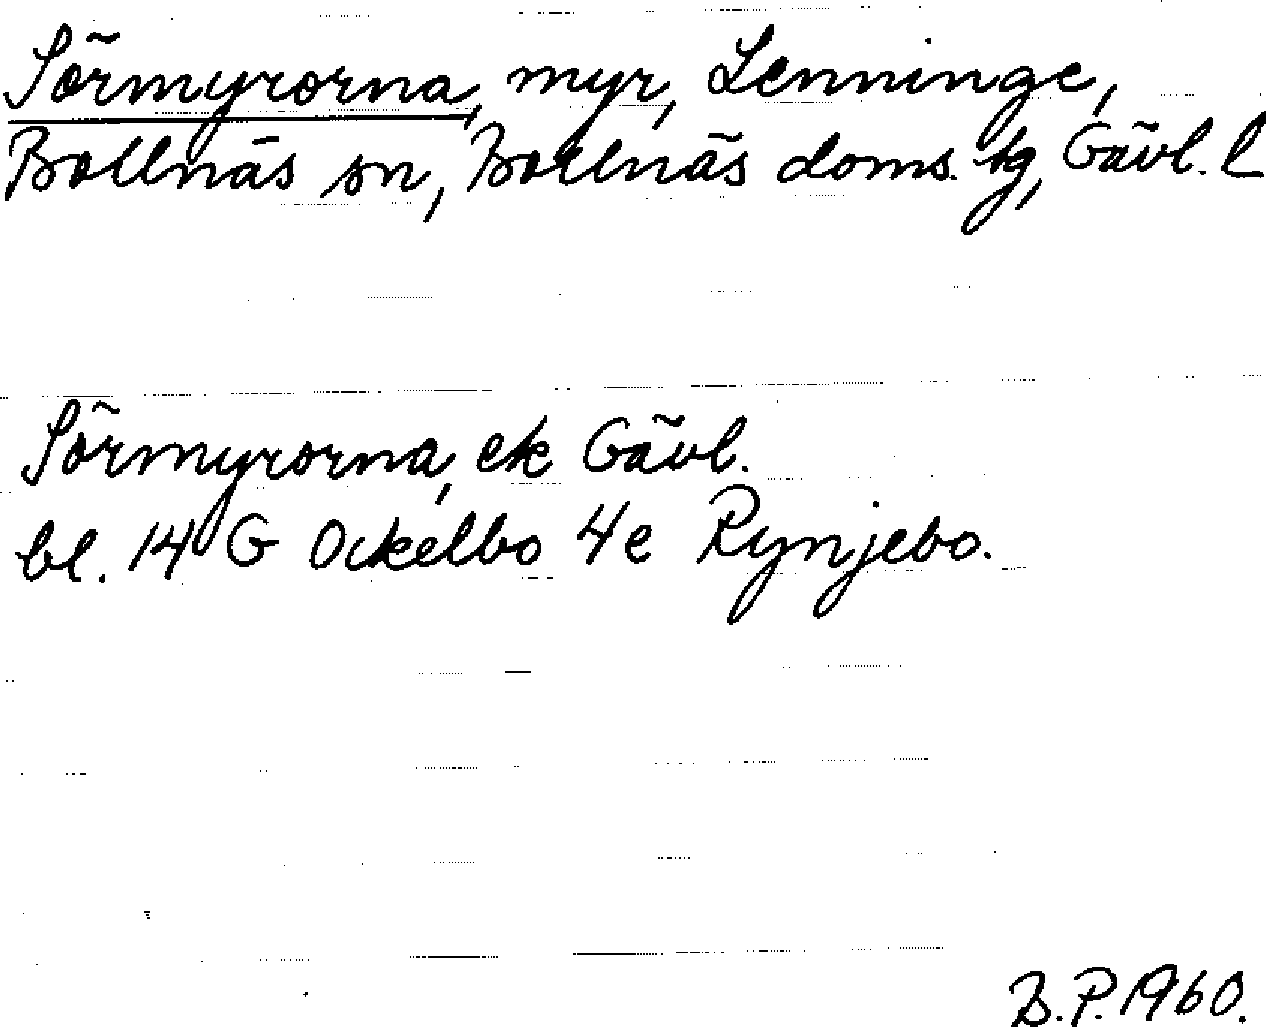 Sörmyrorna, myr, Lenninge,
Bollnäs sn, Bollnäs doms. tg, Gävl. l
Sörmyrorna, ek Gävl.
bl. 14 G Ockelbo 4e Rynjebo.
B.P. 1960.